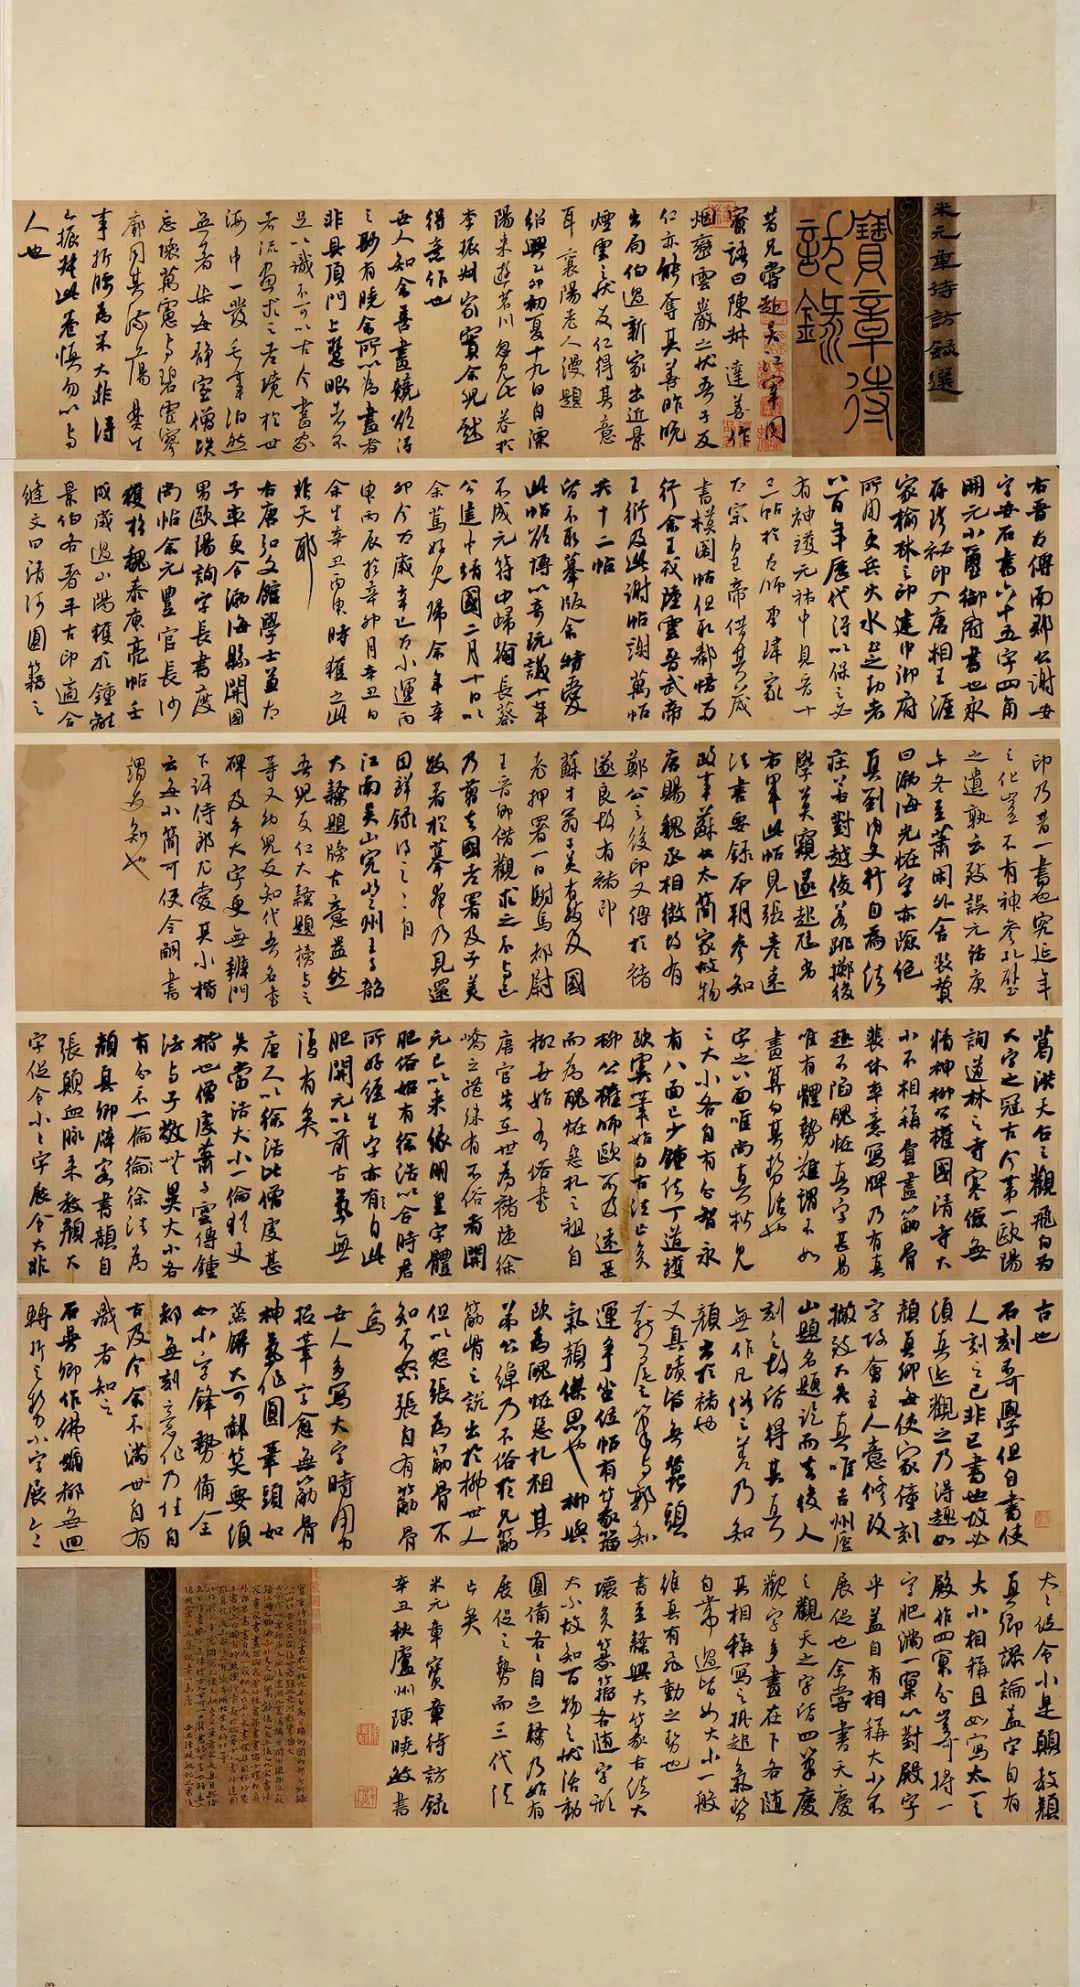 米元章待訪錄選
寶章待
訪錄
昔兄嘗赴吳江宰同
賓語曰陳琳達善作
烟巒雲巖之狀吾子友
仁亦能奪其善昨晚
出局伯過新家出近景
煙雲之狀友仁得其意
耳襄陽老人漫題
紹興乙卯初夏十九日自溧
陽來遊苕川忽見此卷於
李振叔家實余兒戲
得意作也
世人知余善畫競欲得
之鮮有曉余所以為畫者
非具頂門上慧眼者不
足以識不可以古今畫家
者流畫求之老境於世
海中一髮毛事泊然
無著染每靜室僧趺
忘懷萬慮與碧虛寥
廓同其流蕩焚生
事折腰為米大非得
已振叔此卷慎勿以與
人也
右晉太傅南郡公謝安
字安石書六十五字四角
開元小璽御府書也永
存珍秘印入唐相王涯
家榆林之印建中御府
所用更兵火水土之劫者
八百年歷代得以保之必
有神護元祐中見晉十
三帖於太師李瑋家
太宗皇帝借其藏
書模閣帖但取郗愔兩
行余王戎陸雲晉武帝
王衍及此謝帖謝萬帖
共十二帖
皆不取摹版余特愛
此帖欲博以奇玩議十年
不成元符中歸翰長蔡
公建中靖國二月十日以
余篤好見歸余年辛
卯今太歲辛巳大小運丙
申丙辰於辛卯月辛丑日
余生辛丑丙申時獲之此
非天耶
右唐弘文館學士兼太
子率更令渤海縣開國
男歐陽詢字長書度
尚帖余元豐官長沙
獲於魏泰庾亮帖壬
戌歲過山陽獲於鍾離
景伯各著平古印適合
縫文曰清河圖籍之
印乃昔一書也究延年
之化豈不有神參孔壁
之遺孰云致誤元祐庚
午冬至蕭閒外舍裝贊
曰渤海光怪字亦險絕
真到內史行自為法
莊若對越俊若跳擲後
學莫窺遂趨尪劣
右軍此帖見張彥遠
法書要錄本朝參知
政事蘇公太簡家故物
唐賜魏丞相徵故有
鄭公之後印又傳於褚
遂良故有褚印
蘇才翁子美有跋及國
老押署一日駙馬都尉
王晉卿借觀求之不與已
乃剪去國老署及子美
跋著於摹卷乃見還
因詳錄得之之自
江南吳山究竺州王子韶
大隸題牓古意盎然
吾兒友仁大隸題榜與之
等又幼兒友知代吾名書
碑及手大字更無辨門
下許侍郎尤愛其小楷
云每小簡可使令嗣書
謂友知也
葛洪天台之觀飛白為
大字之冠古今第一歐陽
詢道林之寺寒儉無
精神柳公權國清寺大
小不相稱費盡筋骨
裴休率意寫牌乃有真
趣不陷醜怪真字甚易
唯有體勢難謂不如
畫算勻其勢活也
字之八面唯尚真楷見
之大小各自有分智永
有八面已少鍾法丁道護
歐虞筆始勻古法亡矣
柳公權師歐不及遠甚
而為醜怪惡札之祖自
柳世始有俗書
唐官告在世為褚陸徐
嶠之體殊有不俗者開
元已以來緣明皇字體
肥俗始有徐浩以合時君
所好經生字亦自此
肥開元以前古氣無
復有矣
唐人以徐浩比僧虔甚
失當浩大小一倫猶吏
楷也僧虔蕭子雲傳鍾
法與子敬無異大小各
有分不一倫徐浩為
顏真卿辟客書韻自
張顛血脈來教顏大
字促令小小字展令大非
古也
石刻奇學但自書使
人刻之已非已書也故必
須真迹觀之乃得趣如
顏真卿每使家僮刻
字故會主人意修改
撇致大失真唯吉州廬
山題名題訖而去後人
刻之故皆得其真
無作凡俗之差乃知
顏出於褚也
又真蹟皆無蠶頭
燕尾之筆與郭知
運爭坐位帖有篆籀
氣顏傑思也柳與
歐為醜怪惡札祖其
弟公綽乃不俗於兄筋
骨之說出於柳世人
但以怒張為筋骨不
知不怒張自有筋骨
焉
世人多寫大字時用力
捉筆字愈無筋骨
神氣作圓筆頭如
蒸餅大可鄙笑要須
如小字鋒勢備全
都無刻意做作乃佳自
古及今余不滿世自有
識者知之
石曼卿作佛號都無回
轉折之勢小字展令
大大促令小是顛教顏
真卿謬論蓋字自有
大小相稱且如寫太一之
殿作四窠分豈將一
字肥滿一窠以對殿字
乎蓋自有相稱大小不
展促也余嘗書天慶
之觀天之字皆四筆慶
觀字多畫在下各隨
其相稱寫之掛起氣勢
自帶過皆如大小一般
雖真有飛動之勢也
書至隸興大篆古法大
壞矣篆籀各隨字形
大小故知百物之狀活動
圓備各各自足隸乃始有
展促之勢而三代法
亡矣
米元章寶章待訪錄
辛丑秋廬州陳曉敏書